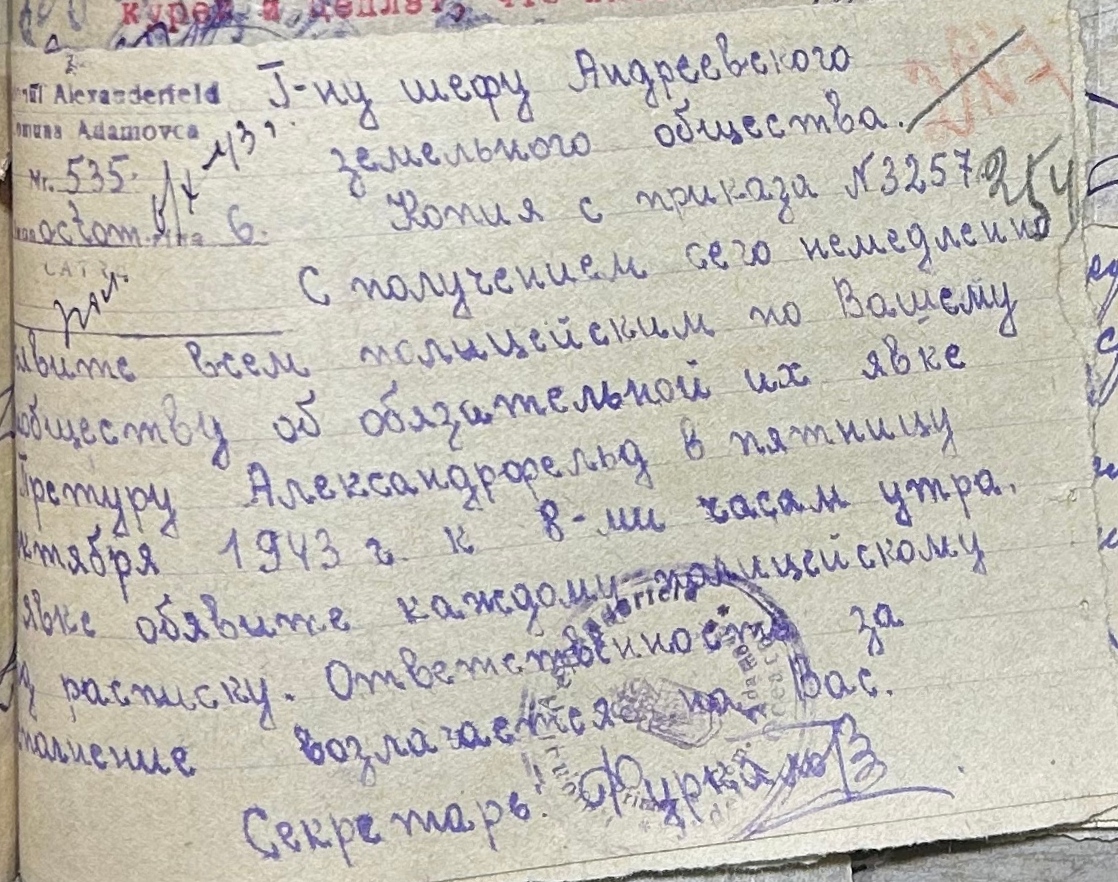 курей и
Alexanderfeld
Adamovca
Nr. 535
octom. 6.
I-ну шефу Андреевского
земельного общества.
254
Копия с приказа N3257.
С получением сего немедленно
явите всем полицейским по Вашему
обществу об обязательной их явке
Претуру Александрофельд в пятницу
ктября 1943 г. к 8-ми часам утра.
явке обявите каждому полицейскому
расписку. Ответственность за
полнение возлагается на Вас.
Секретарь: